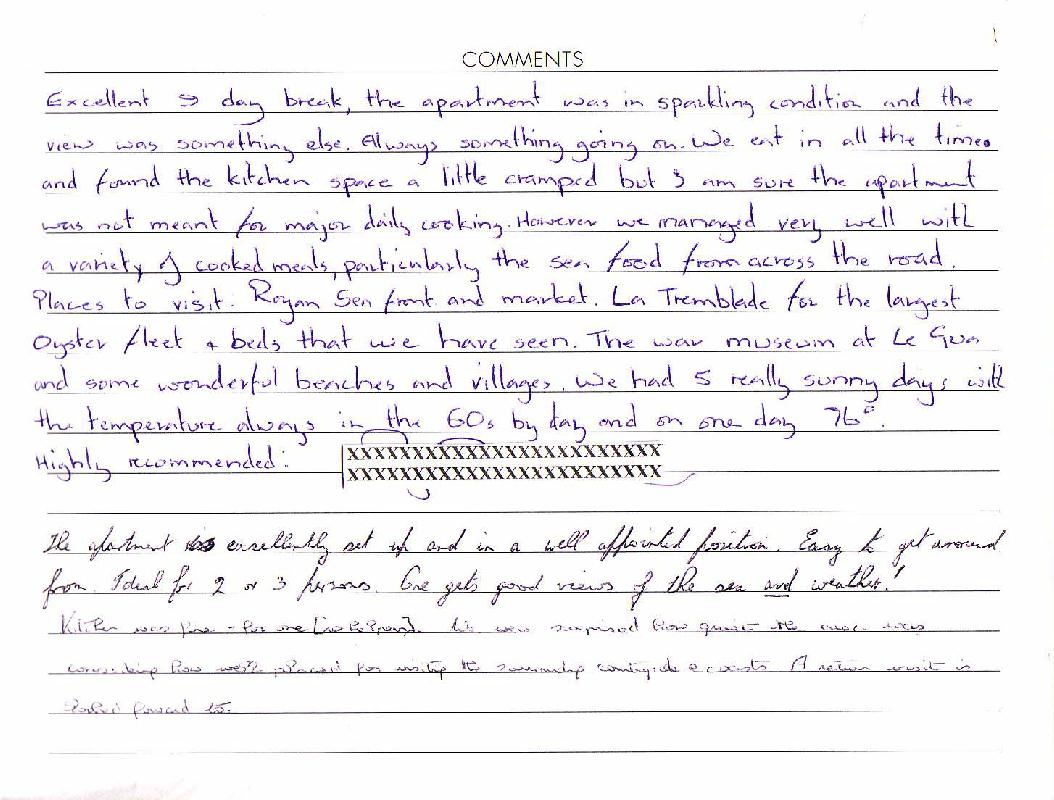 COMMENTS
Excellent 5 day break, the apartment was in sparkling condition and the
view was something else. Always something going on. We eat in all the times
and found the kitchen space a little cramped but I am sure the apartment
was not meant for major daily cooking. However we managed very well with
a variety of cooked meals, particularly the sea food from across the road.
Places to visit. Royan Sea front and market. La Tremblade for the largest
Oyster fleet & beds that we have seen. The war museum at Le Gua
and some wonderful beaches and villages. We had 5 really sunny days with
the temperature always in the 60s by day and on one day 76°.
Highly recommended. XXXXXXXXXXXXXXXXXXXXXXXX
XXXXXXXXXXXXXXXXXXXXXXXX
The apartment is excellently set up and in a well appointed position. Easy to get around
from. Ideal for 2 or 3 persons. One gets good views of the sea and weather!
Kitchen was fine - for me. We were surprised how quiet the area was
considering how well placed for visiting the surrounding countryside & coasts A return visit is
looked forward to.